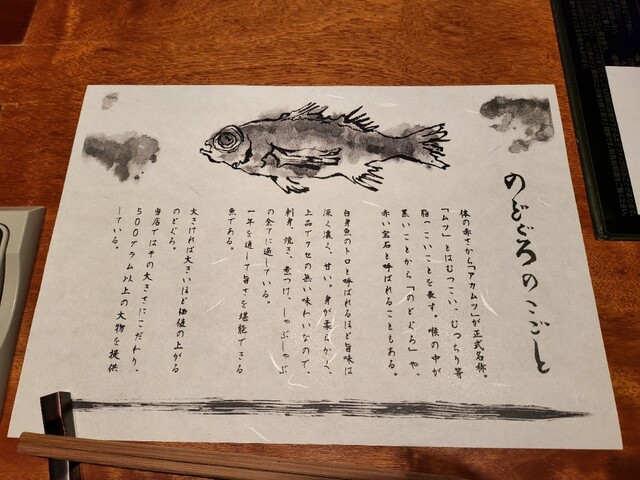 のどぐろのこごと
体の赤さから「アカムツ」が正式名称。
「ムツ」とはむつこい、むつちり等
脂っこいことを表す。喉の中が
黒いことから「のどぐろ」や、
赤い宝石と呼ばれることもある。
白身魚のトロと呼ばれるほど旨味は
深く濃く、甘い。身が柔らかく、
上品でクセの無い味わいなので、
刺身、焼き、煮つけ、しゃぶしゃぶ
の全てに適している。
一年を通して旨さを堪能できる
魚である。
大きければ大きいほど価値の上がる
のどぐろ。
当店ではその大きさにこだわり、
500グラム以上の大物を提供
している。